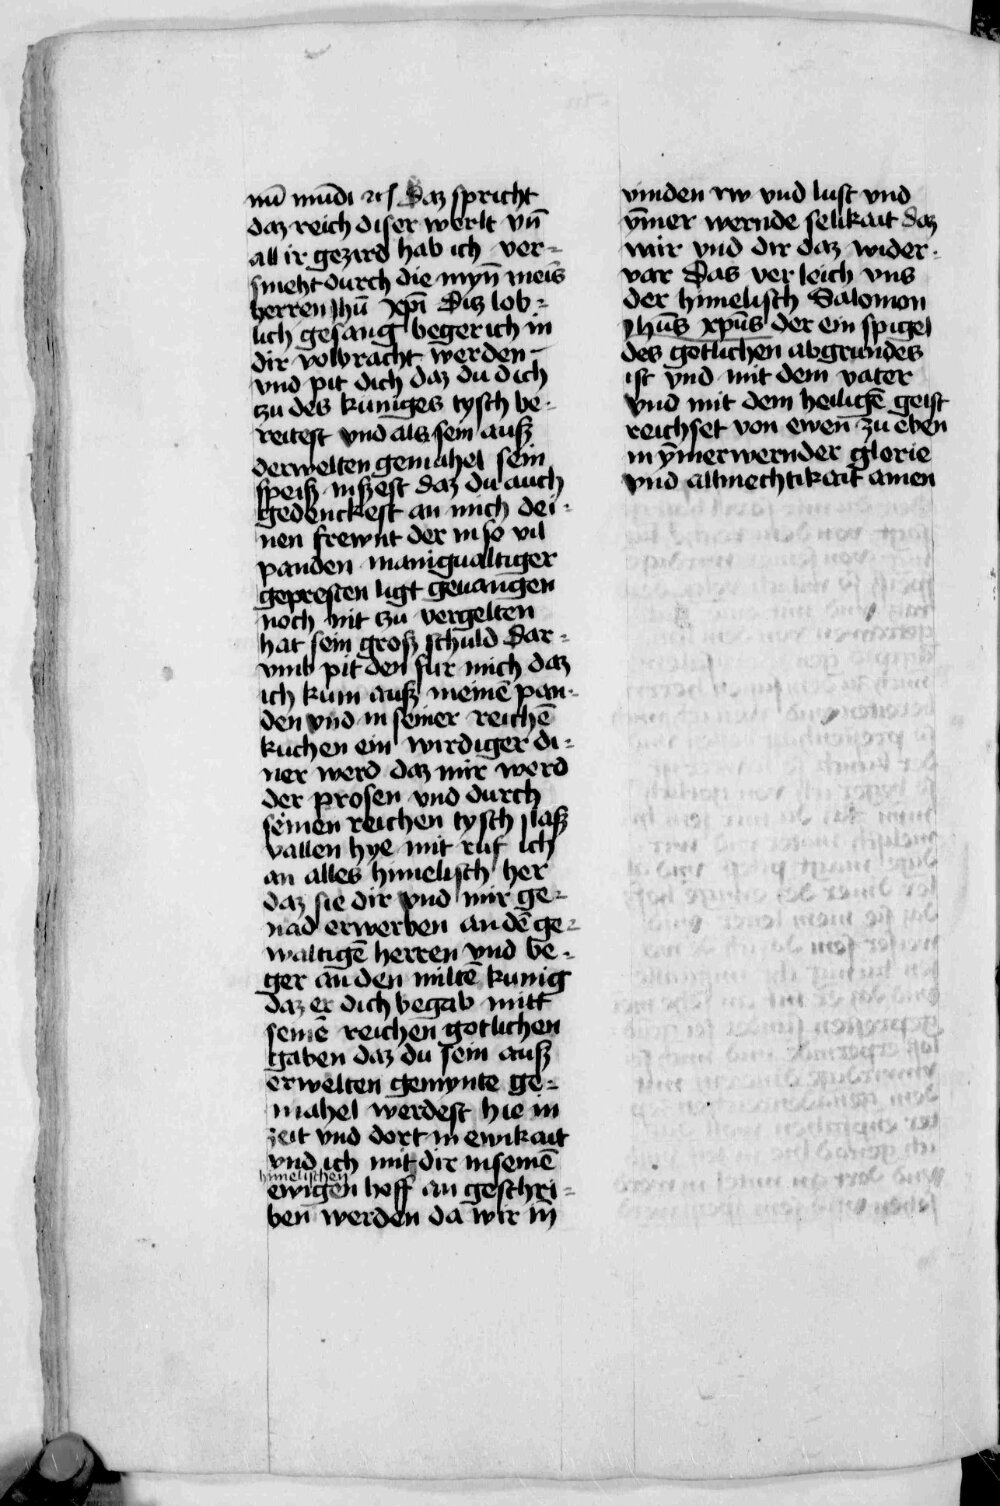 nū mūdi ⁊cͥ Daz spricht
daz reich diser werlt vn̄
all ir gezird hab ich ver=
smeht durch die myn̄ meis̄
herren Jhū xpī Diz lob=
lich gesang beger ich in
dir volbracht werden
vnd pit dich daz du dich
zu des kuniges tysch be=
reitest vnd als sein auß
derwelten gemahel sein
speiß nißest daz du auch
gedenckest an mich dei=
nen frewnt der in so vil
panden manigualtiger
gepresten ligt geuangen
noch nit zu vergelten
hat sein groß schuld Dar=
vmb pit den fur mich daz
ich kum auß meinē pan=
den vnd in seiner reichē
kuchen ein wirdiger di=
ner werd daz mir werd
der prosen vnd durch
seinen reichen tysch slaß
vallen hye mit ruf ich
an alles himelisch her
daz sie dir vnd mir ge=
nad erwerben an dē ge=
waltigē herren vnd be=
ger an den miltē kunig
daz er dich begab mitt
seinē reichen gotlichen
gaben daz du sein auß
erwelten gemynte ge=
mahel werdest hie in
zeit vnd dort in ewikait
vnd ich mit dir in seinē
himelischen
ewigen hoff an geschri=
ben werden da wir in̄
vinden rw vnd lust vnd
ȳmer wernde selikait daz
mir vnd dir daz wider
var Das verleich vns
der himelisch Salomon
Jhūs xpūs der ein spigel
des gotlichen abgrundes
ist vnd mit dem vater
vnd mit dem heiligē geist
reichset von ewen zu eben
in ȳmerwernder glorie
vnd almechtikait amen